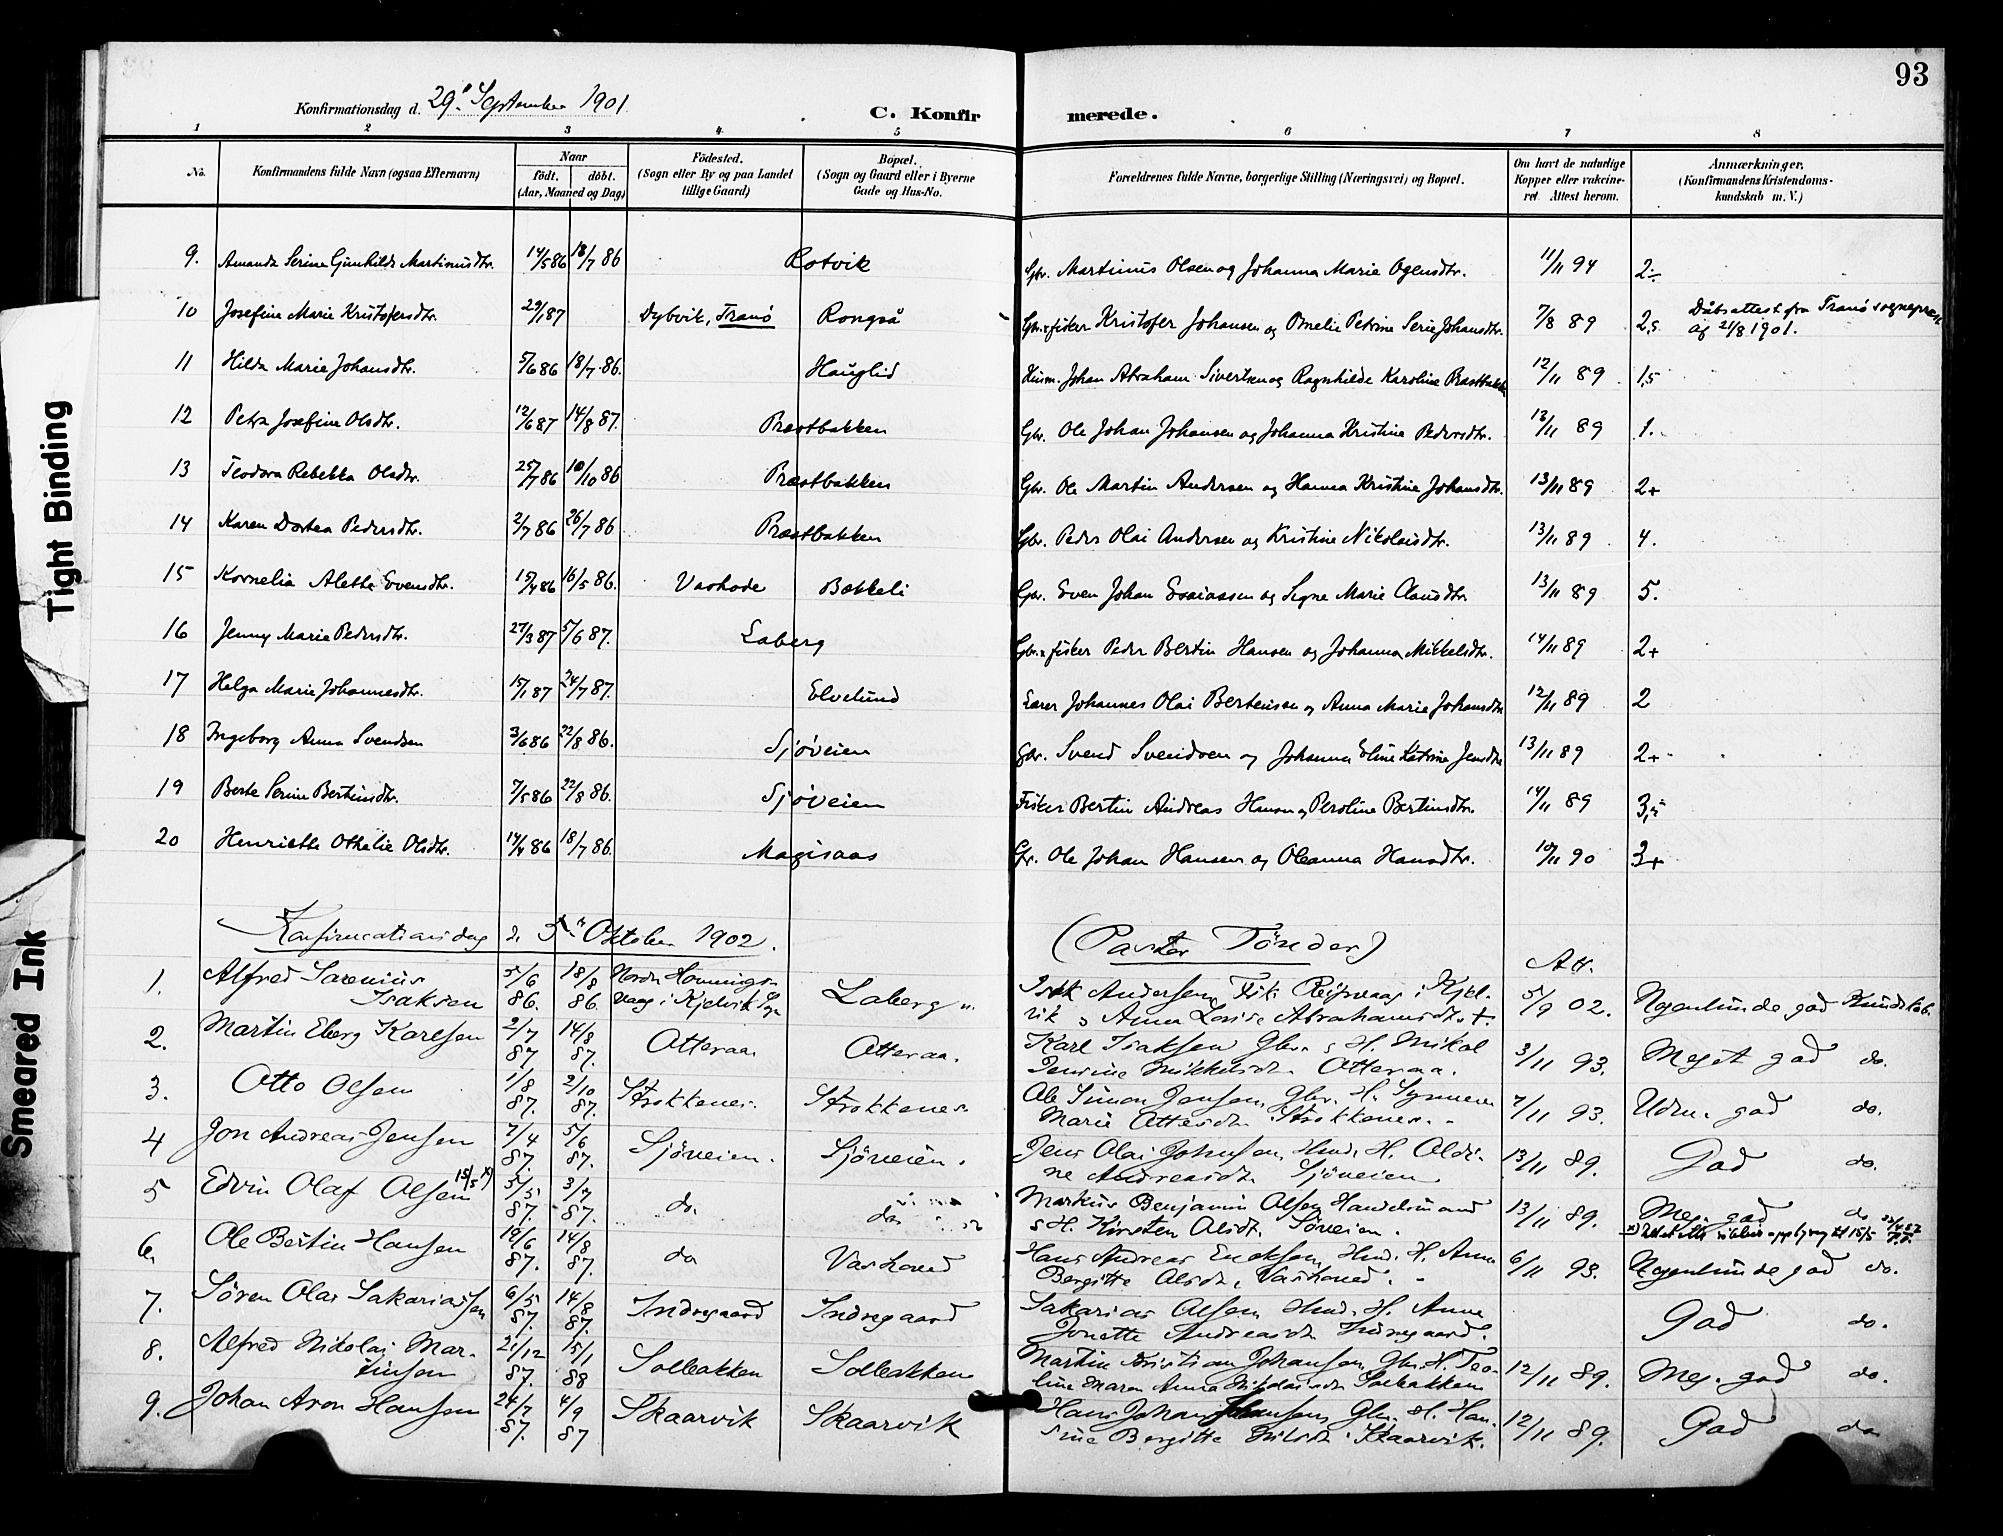 93
Konfirmationsdag d. 29. September 1901.
C. Konfirmerede.
1 2 3 4 5 6 7 8
No. Konfirmandens fulde Navn (ogsaa Efternavn) Naar födt. döbt. (Aar, Maaned og Dag) Födested. (Sogn eller By og paa Landet tillige Gaard) Bopæl. (Sogn og Gaard eller i Byerne Gade og Hus-No. Forældrenes fulde Navne, borgerlige Stilling (Næringsvei) og Bopæl. Om havt de naturlige Kopper eller vakcineret. Attest herom. Anmærkninger. (Konfirmandens Kristendomskundskab m. V.)
9. Amanda Serine Gunhilda Martinusdtr. 14/5 86 18/7 86 Rotvik Gbr. Martinus Olsen og Johanna Marie 11/11 94 2÷
10 Josefine Marie Kristofersdtr. 29/1 87 Dybvik, Tranö Rongså Gbr. & fisker Kristofer Johansen og Petrine Johansdtr. 7/8 89 2,5 Dåbsattest fra Tranö sogneprest af 21/8 1901.
11 Hilda Marie Johansdtr. 5/6 86 18/7 86. Hauglid Husm. Johan Abraham Sivertsen og Ragnhilde Karoline Præstbakken 12/11 89 1,5
12 Petra Josefine Olsdtr. 12/6 87 14/8 87. Præstbakken Gbr. Ole Johan Johansen og Johanna Kristine Pedersdtr. 13/11 89 1.
13 Teodora Rebekka Olsdtr. 25/7 86 10/10 86 Præstbakken Gbr. Ole Martin Andersen og Hanna Kristine Johansdtr. 13/11 89 2+
14 Karen Dortea Pedersdtr. 2/7 86 26/7 86 Præstbakken Gbr. Peder Olai Andersen og Kristine Nikolaisdtr. 13/11 89 4.
15 Kornelia Aletta Evensdtr. 15/4 86 16/5 86. Vashode Bækkeli Gbr. Even Johan Esaiassen og Signe Marie Clausdtr. 13/11 89 5.
16 Jenny Marie Pedersdtr. 27/3 87 5/6 87. Laberg Gbr. & fisker Peder Bertin Hansen og Johanna Mikkelsdtr. 14/11 89 2+
17 Helga Marie Johannesdtr. 15/1 87 24/7 87. Elvelund Lærer Johannes Olai Bertensen og Anna Marie Johansdtr 12/11 89 2
18 Ingeborg Anna Svendsen 3/6 86 22/8 86. Sjøveien Gbr. Svend Svendsen og Johanna Eline Katrine Jensdtr 13/11 89 2+
19 Berte Serine Bertinsdtr. 7/5 86 22/8 86. Sjøveien Fisker Bertin Andreas Hansen og Peroline Bertinsdtr. 14/11 89 3,÷
20 Henriette Othelie Olsdtr. 14/4 86 18/7 86. Magisaas Gbr. Ole Johan Hansen og Oleanna Hansdtr. 10/11 90 3+
Konfirmationsdag d. 5te Oktober 1902. (Pastor Tønder)
Att.
1. Alfred Sarenius 5/6 18/8 Nordre Honnings- Isak Andersen Fisk. Reisvaag i Kjel-
Isaksen 86. 86. vaag i Kjelvik Laberg vik & Anna Lovise Abrahamsdt. +. 5/9 02. Nogenlunde god Kundskab.
2. Martin Eberg Karlsen 2/7 14/8 Otteraa. Otteraa. Karl Isaksen Gbr. & H. Mikal
87 87. Jensine Mikkelsdt. Otteraa. 3/11 93. Meget god do.
3. Otto Olsen 1/8 2/10 Strokkenes. Strokkenes. Ole Simon Jensen, Gbr. H.
87. 87. Marie Ottesdt. Strokkenes. 7/11 93. Udm. god do.
4 Jon Andreas Jensen 7/4 5/6 Sjöveien. Sjöveien. Jens Olai Johnsen, Hmd. H. Oldi-
87. 87. ne Andreasdt. Sjöveien 13/11 89. God do.
5 Edvin Olaf Olsen 15/5 x) 5/5 3/7 do. do. Markus Benjamin Olsen Handelsmand
87. 87. & H. Kirsten Olsdt. Søveien. 13/11 89. Meg. god do
6. Ole Bertin Hansen 12/6 14/8 do Vashoved Hans Andreas Hmd. H. Anna
87. 87. Bergitte Olsdt. Vashoved. 6/11 93. Nogenlunde god do.
7. Søren Olai Sakariassen 6/5 14/8 Indregaard Indregaard Sakarias Olsen Hmd. H. Anne
87. 87. Jonette Andreasdt. Indregaard. God do.
8. Alfred Nikolai Mar- 21/12 15/1 Solbakken Solbakken Martin Kristian Johansen, Gbr. H. Teo-
tinsen 87. 88 line Maren Anna Nikolaisdt. Solbakken 12/11 89. Meg. god do.
9. Johan Aron Hansen 24/7 4/9 Skaarvik Skaarvik Hans Johan Johansen, Gbr. H. Han-
87. 87 sine Bergitte Nilsdt. Skaarvik. 12/11 89. God do
Tight Binding
Smeared Ink